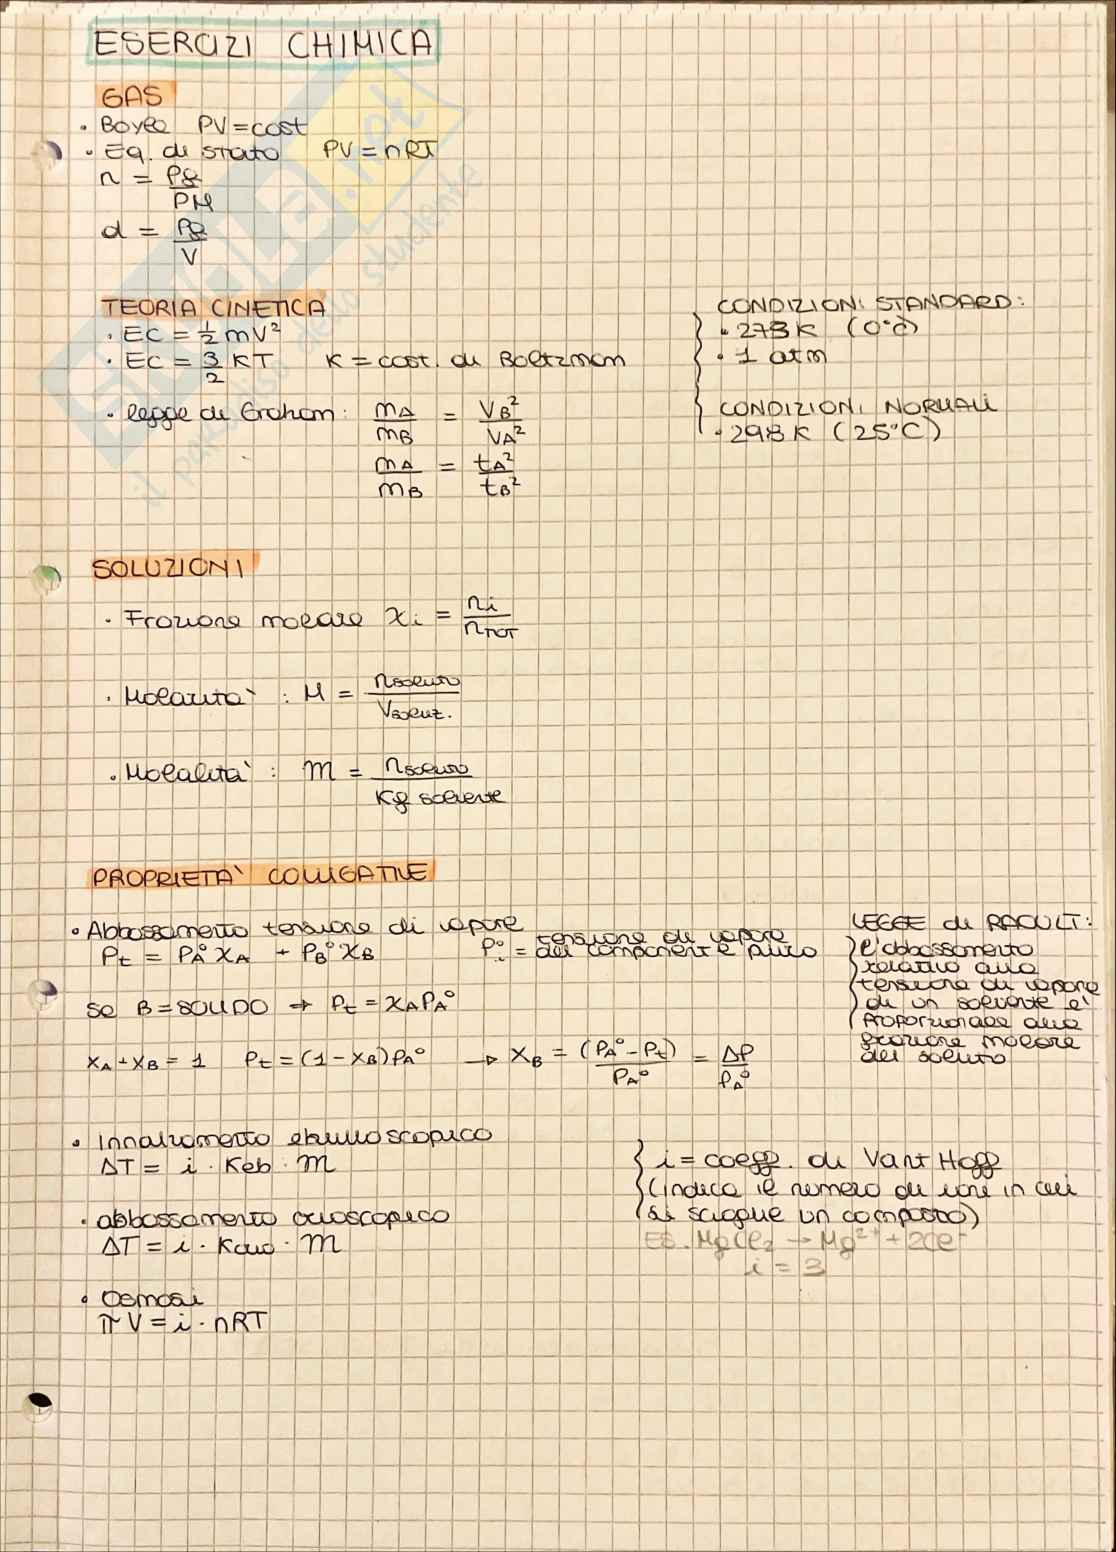 ESERCIZI CHIMICA
GAS
• Boyle PV = cost
• Eq. di stato PV = nRT
n = Pg / PM
d = Pg / V
TEORIA CINETICA
• EC = 1/2 mV²
• EC = 3/2 KT K = cost. di Boltzman
• legge di Graham: mA / mB = VB² / VA²
mA / mB = tA² / tB²
CONDIZIONI STANDARD:
• 273K (0°C)
• 1 atm
CONDIZIONI NORMALI
• 298K (25°C)
SOLUZIONI
• Frazione molare χi = ni / nTOT
• Molarità : M = nsoluto / Vsoluz.
• Molalità : m = nsoluto / Kg solvente
PROPRIETA' COLLIGATIVE
• Abbassamento tensione di vapore
Pt = PA° χA + PB° χB
Pi° = tensione di vapore
del componente puro
se B = SOLIDO → Pt = χA PA°
χA + χB = 1 Pt = (1 - χB) PA° → χB = (PA° - Pt) / PA° = ΔP / PA°
LEGGE di RAOULT:
l'abbassamento
relativo alla
tensione di vapore
di un solvente è
proporzionale alla
frazione molare
del soluto
• Innalzamento ebullioscopico
ΔT = i · Keb · m
• abbassamento crioscopico
ΔT = i · Kcrio · m
i = coeff. di Vant Hoff
(indica il numero di ioni in cui
si scioglie un composto)
ES. MgCl₂ → Mg²⁺ + 2Cl⁻
i = 3
• Osmosi
πV = i · nRT
SKUOLA.net
il paradiso dello studente